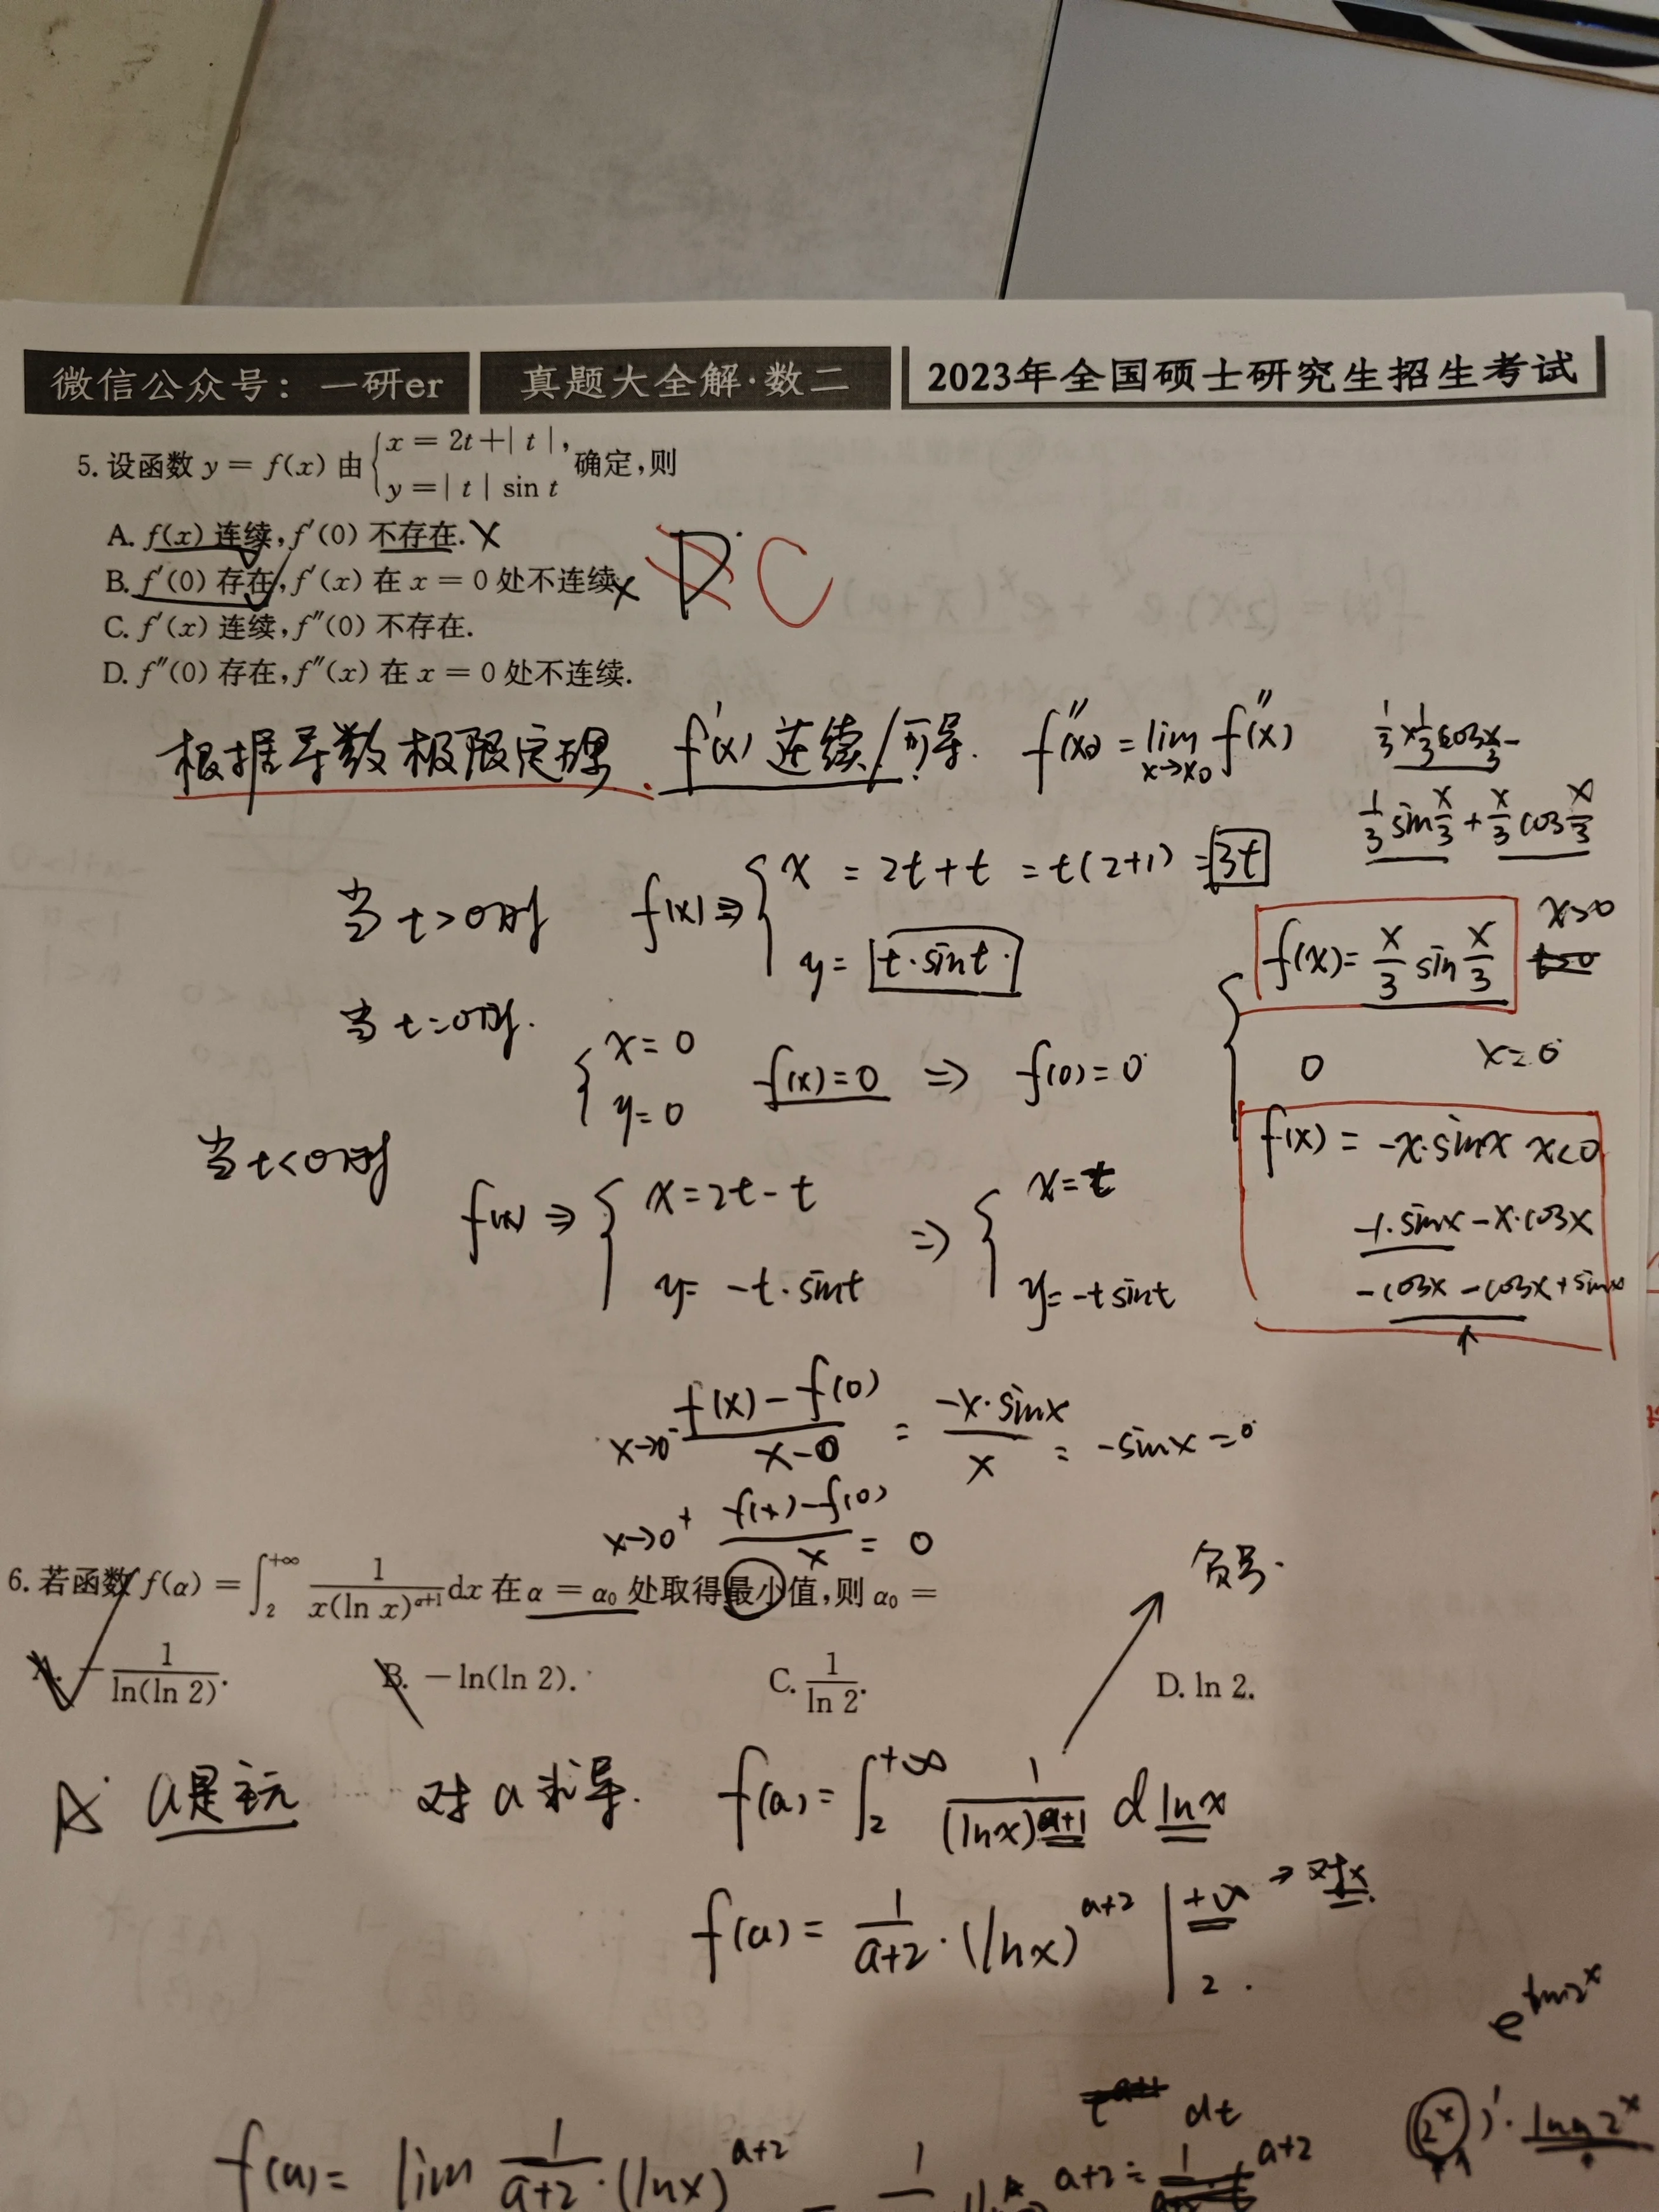 微信公众号：一研er 真题大全解·数二 2023年全国硕士研究生招生考试
5. 设函数 y = f(x) 由 { x = 2t+| t |, y =| t | sin t 确定,则
A. f(x) 连续, f′(0) 不存在. X
B. f′(0) 存在, f′(x) 在 x = 0 处不连续. X
D C
C. f′(x) 连续, f″(0) 不存在.
D. f″(0) 存在, f″(x) 在 x = 0 处不连续.
根据导数极限定理. f'(x) 连续/可导. f''(x₀) = lim x→x₀ f''(x)
1/3 x 1/3 cos x/3 -
1/3 sin x/3 + x/3 cos x/3
当 t>0时 f(x) ⇒ { x = 2t+t = t(2+1) = 3t
y = t·sint·
{ f(x)= x/3 sin x/3 x>0
当 t=0时. { x=0 y=0 f(x)=0 ⇒ f(0)=0
0 x=0
f(x) = -x·sinx x<0
当 t<0时 f(x) ⇒ { x=2t-t y= -t·sint ⇒ { x=t y=-tsint
-1·sinx-x·cosx
-cosx-cosx+sinx
x→0⁻ f(x)-f(0) / x-0 = -x·sinx / x = -sinx=0
x→0⁺ f(x)-f(0) / x = 0
6. 若函数 f(α) = ∫₂^{+∞} 1/(x(ln x)^{α+1}) dx 在 α = α₀ 处取得最小值,则 α₀ =
负号.
A. − 1/ln(ln 2). B. − ln(ln 2). C. 1/ln 2. D. ln 2.
A. a是主元 对a求导. f(a)= ∫₂^{+∞} 1/(lnx)^{a+1} d lnx
f(a)= 1/(a+2) ·(lnx)^{a+2} |₂^{+∞} → 对x.
dt
f(a)= lim 1/(a+2)·(lnx)^{a+2}